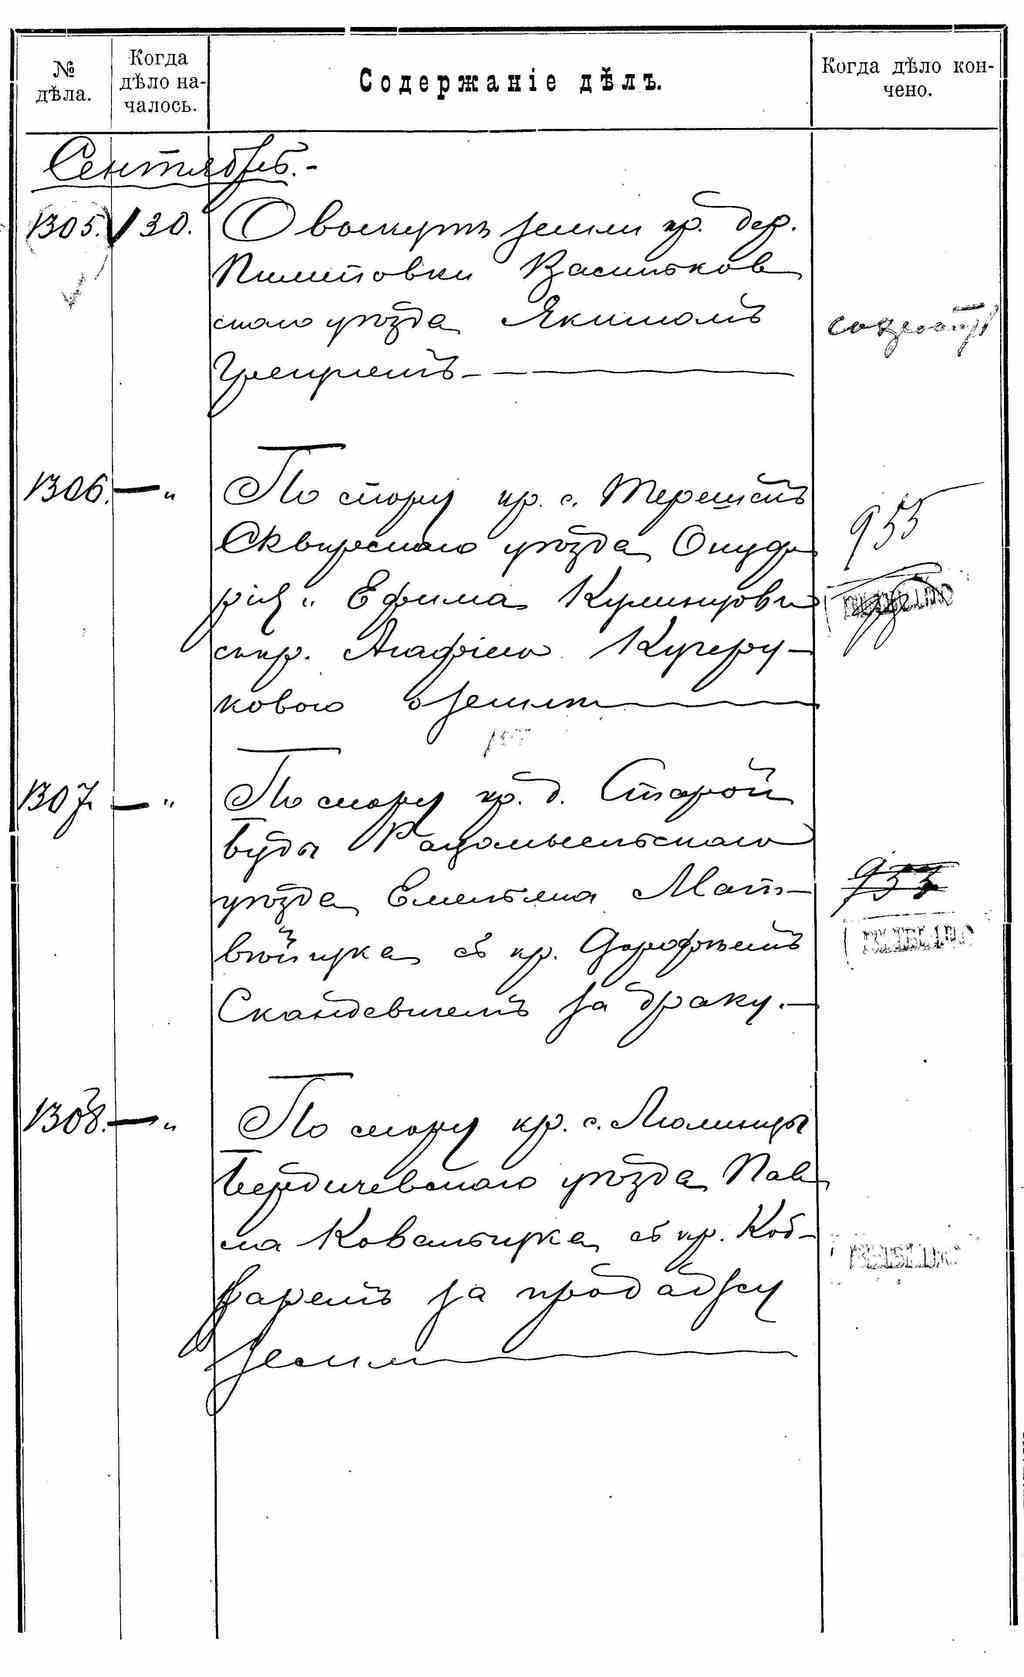 №
дѣла.
Когда
дѣло на-
чалось.
Содержаніе дѣлъ.
Когда дѣло кон-
чено.
Сентябрь.-
1305. 30. О выкупѣ земли кр. дер.
Пилиповки Васильков
скаго уѣзда Якимомъ
1306. — „ По спору кр. с.
Сквирскаго уѣзда Онуф
рія и Ефима
съ кр. Агафіею Кучеру-
ковою о землѣ
955
1307. — „ По спору кр. д. Старой
Буды Радомысльскаго
уѣзда Емельяна Мат-
вѣйчука съ кр. Дорофѣемъ
за драку.—
953
1308. — „ По спору кр. с.
Бердичевскаго уѣзда Пав
ла Ковальчука съ кр. Коб-
заремъ за продажу
земли